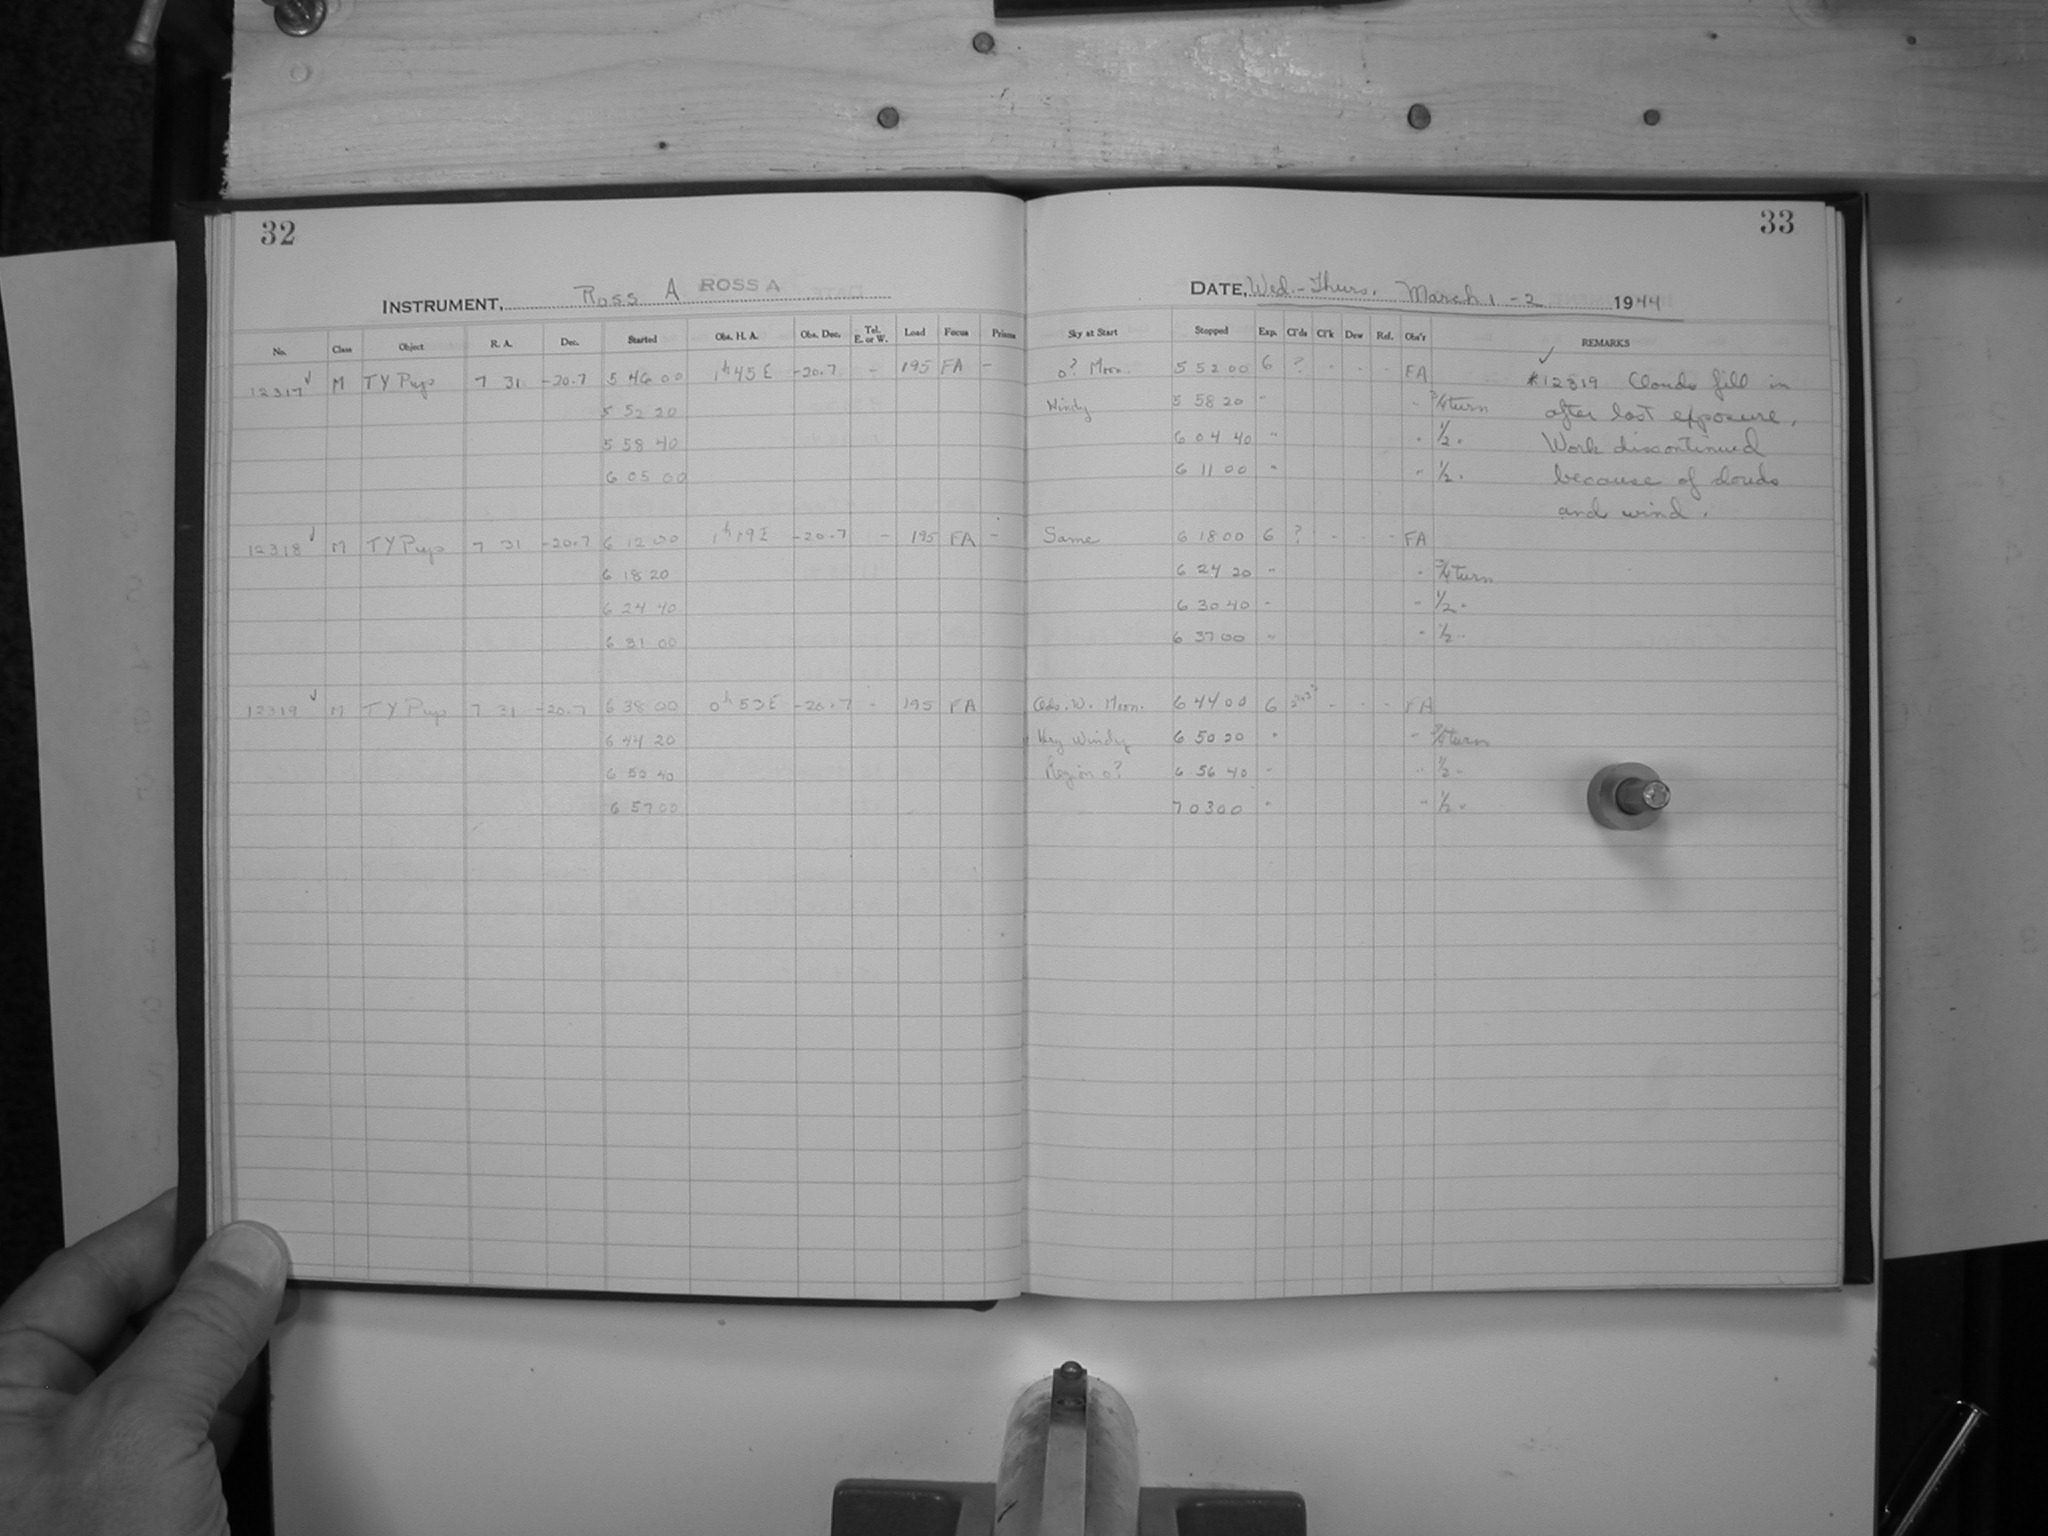 32
33
INSTRUMENT, Ross A ROSS A
DATE, Wed.-Thurs. March 1-2 1944
No. Class Object R. A. Dec. Started Obs. H. A. Obs. Dec. Tel. E. or W. Load Focus Prisms Sky at Start Stopped Exp. Cl'ds Cl'k Dew Ref. Obs'r REMARKS
12317 ✓ M TY Pup 7 31 -20.7 5 46 00 1h 45 E -20.7 - 195 FA - 0? Moon. 5 52 00 6 ? - - - FA
5 52 20 Windy 5 58 20 " " 3/4 turn
5 58 40 6 04 40 " " 1/2 "
6 05 00 6 11 00 " " 1/2 "
✓
#12319 Clouds fill in
after last exposure.
Work discontinued
because of clouds
and wind.
12318 ✓ M TY Pup 7 31 -20.7 6 12 00 1h 19 E -20.7 - 195 FA - Same 6 18 00 6 ? - - - FA
6 18 20 6 24 20 " " 3/4 turn
6 24 40 6 30 40 " " 1/2 "
6 31 00 6 37 00 " " 1/2 "
12319 ✓ M TY Pup 7 31 -20.7 6 38 00 0h 53 E -20.7 - 195 FA Clds. W. Moon. 6 44 00 6 - - - FA
6 44 20 Very Windy 6 50 20 " " 3/4 turn
6 50 40 Region 0? 6 56 40 " " 1/2 "
6 57 00 7 03 00 " " 1/2 "